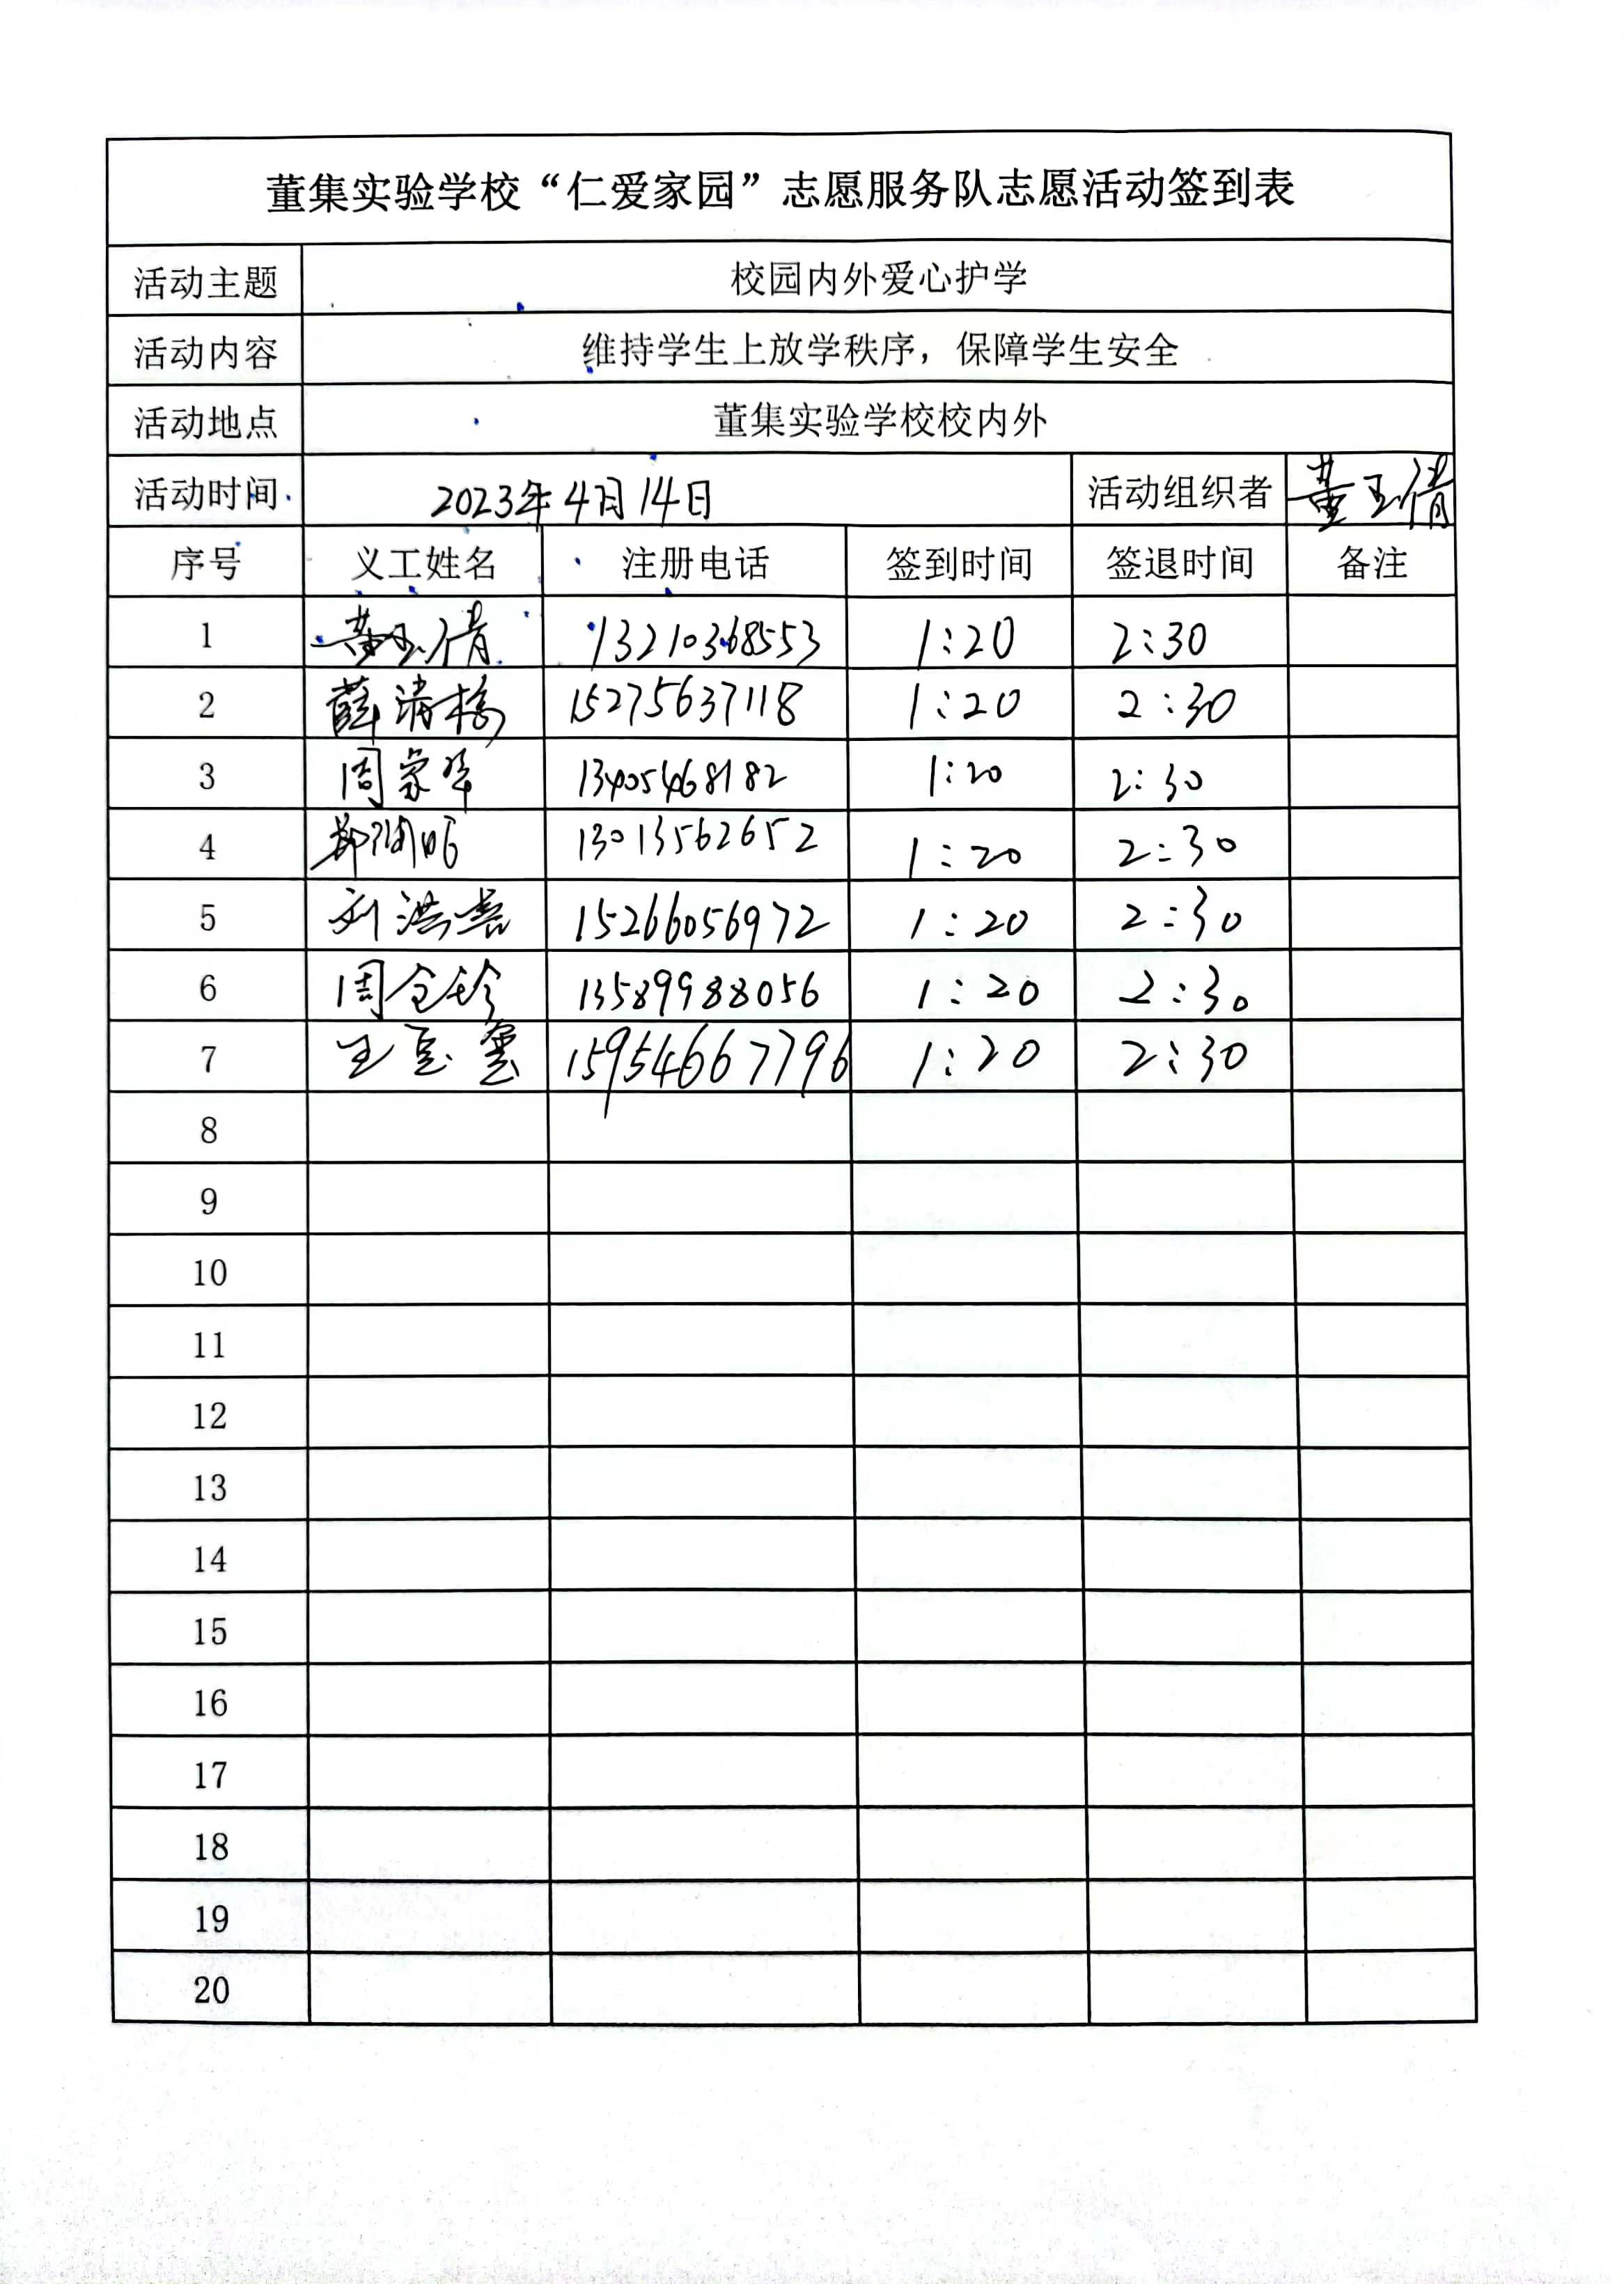 董集实验学校“仁爱家园”志愿服务队志愿活动签到表
活动主题 校园内外爱心护学
活动内容 维持学生上放学秩序，保障学生安全
活动地点 董集实验学校校内外
活动时间 2023年4月14日 活动组织者 董玉倩
序号 义工姓名 注册电话 签到时间 签退时间 备注
1 董玉倩 13210368553 1:20 2:30
2 薛清梅 15275637118 1:20 2:30
3 周家华 13405468182 1:20 2:30
4 13013562652 1:20 2:30
5 刘洪 15266056972 1:20 2:30
6 周金珍 13589988056 1:20 2:30
7 王 15954667796 1:20 2:30
8
9
10
11
12
13
14
15
16
17
18
19
20